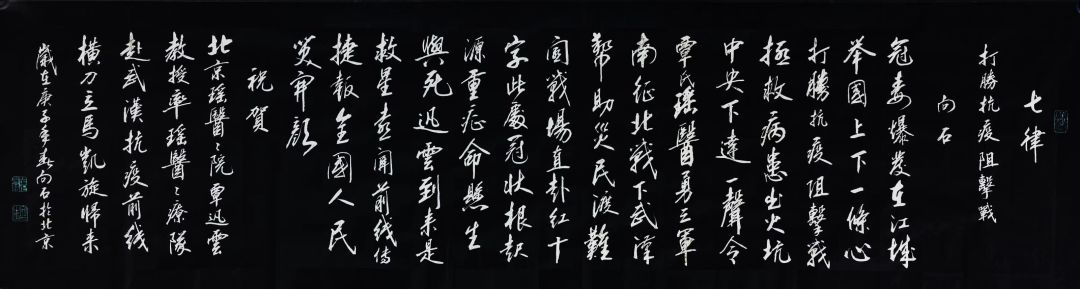 七律
打勝抗疫阻擊戰
向石
冠毒爆发在江城
举國上下一條心
打勝抗疫阻擊戰
拯救病患出火坑
中央下達一聲令
覃氏瑶醫勇三軍
南征北戰下武漢
幫助災民渡難
關戰場直赴红十
字此處冠状根起
源重症命懸生
與死迅雲到来是
救星喜聞前线传
捷報全國人民
笑开颜
祝贺
北京瑶醫々院覃迅雲
教授率瑶醫々療隊
赴武漢抗疫前线
横刀立馬凯旋歸来
歲在庚子年春向石於北京